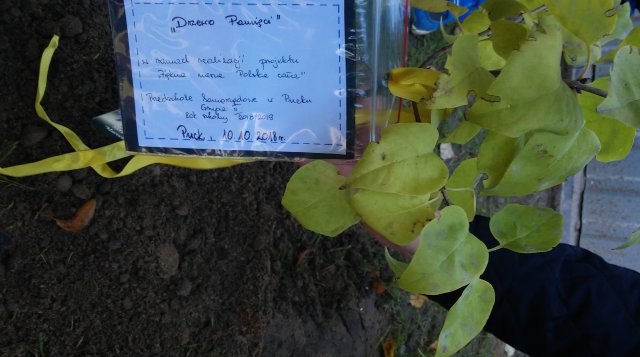 „Drzewo Pamięci"
w ramach realizacji projektu
"Piękna nasza Polska cała"
Przedszkole Samorządowe w Pucku
Grupa II
Rok szkolny 2018/2019
Puck, 10.10.2018r.